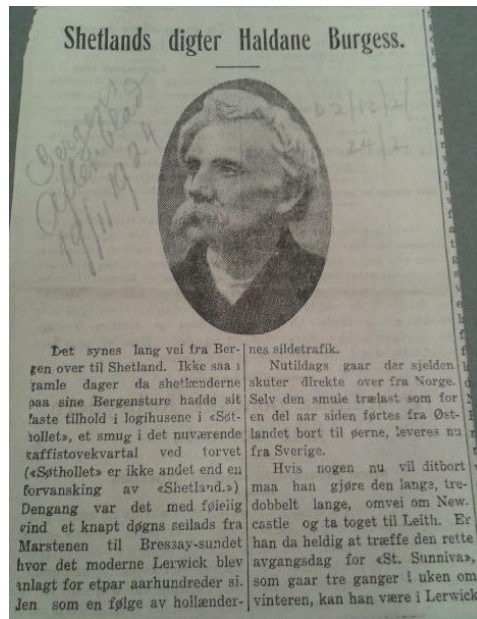 Shetlands digter Haldane Burgess.
Bergens
Aftenblad
19/11 1924
32/13/2/
24/2
Det synes lang vei fra Ber-
gen over til Shetland. Ikke saa i
gamle dager da shetlænderne
paa sine Bergensture hadde sit
faste tilhold i logihusene i «Søt-
hollet», et smug i det nuværende
kaffistovekvartal ved torvet
(«Søthollet» er ikke andet end en
forvansking av «Shetland.»)
Dengang var det med føielig
vind et knapt døgns seilads fra
Marstenen til Bressay-sundet
hvor det moderne Lerwick blev
anlagt for etpar aarhundreder si-
den som en følge av hollænder-
nes sildetrafik.
Nutildags gaar der sjelden
skuter direkte over fra Norge.
Selv den smule trælast som for
en del aar siden førtes fra Øst-
landet bort til øerne, leveres nu
fra Sverige.
Hvis nogen nu vil ditbort
maa han gjøre den lange, tre-
dobbelt lange, omvei om New-
castle og ta toget til Leith. Er
han da heldig at træffe den rette
avgangsdag for «St. Sunniva»,
som gaar tre ganger i uken om
vinteren, kan han være i Lerwick